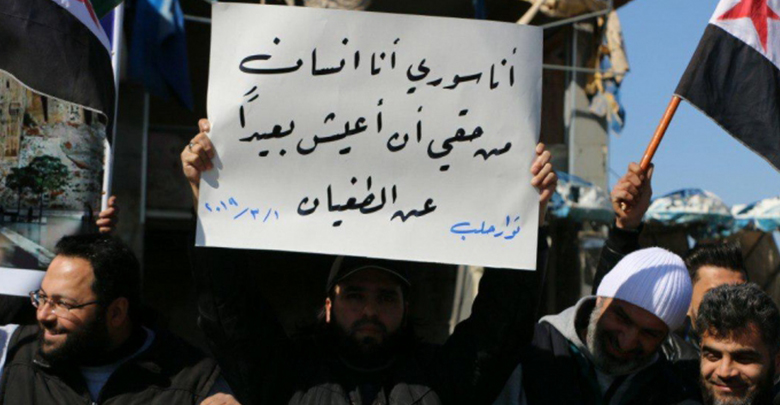 أنا سوري أنا انسان
من حقي أن أعيش بعيداً
عن الطغيان
ثوار حلب
٢٠١٩/٣/١